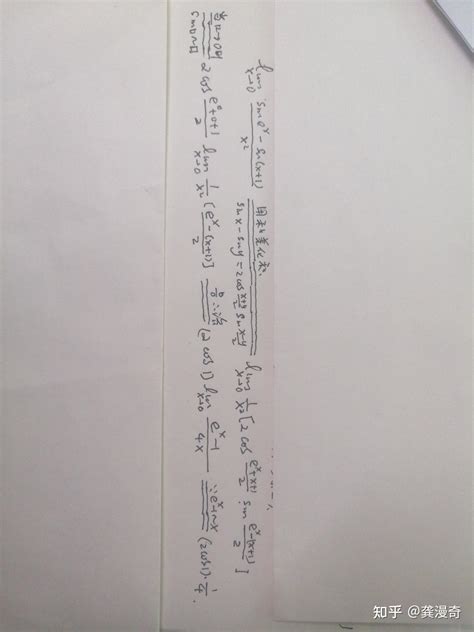 lim_{x→0} (sin e^x − sin(x+1))/x² 用和差化积: sin x − sin y = 2cos (x+y)/2 sin (x−y)/2 lim_{x→0} 1/x² [2 cos (e^x+x+1)/2 · sin (e^x−(x+1))/2]
当□→0时 sin□~□ 2 cos (e^0+0+1)/2 lim_{x→0} 1/x² [(e^x−(x+1))/2] 洛 (2 cos 1) lim_{x→0} (e^x−1)/4x ∵e^x−1~x (2cos1)·1/4.
知乎 @龚漫奇